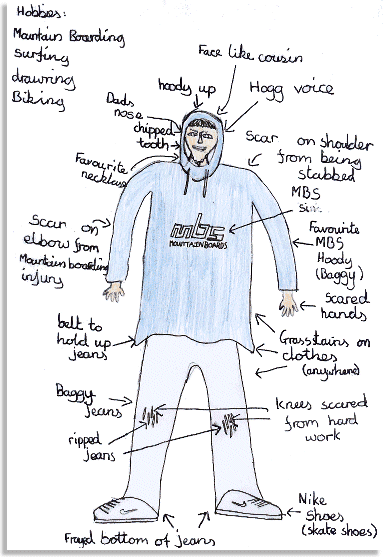 Hobbies:
Mountain Boarding
surfing
drawing
Biking
Face like cousin
hoody up
Hogg voice
Dads
nose
chipped
tooth
Favourite
necklace
Scar on shoulder
from being
stabbed
MBS
Favourite
MBS
Hoody
(Baggy)
mbs
MOUNTAINBOARDS
Scar on
elbow from
Mountain boarding
injury
Scared
hands
belt to
hold up
jeans
Grasstains on
clothes
(anywhere)
Baggy
jeans
Knees scared
from hard
work
ripped
jeans
Nike
Shoes
(skate shoes)
Frayed bottom of jeans